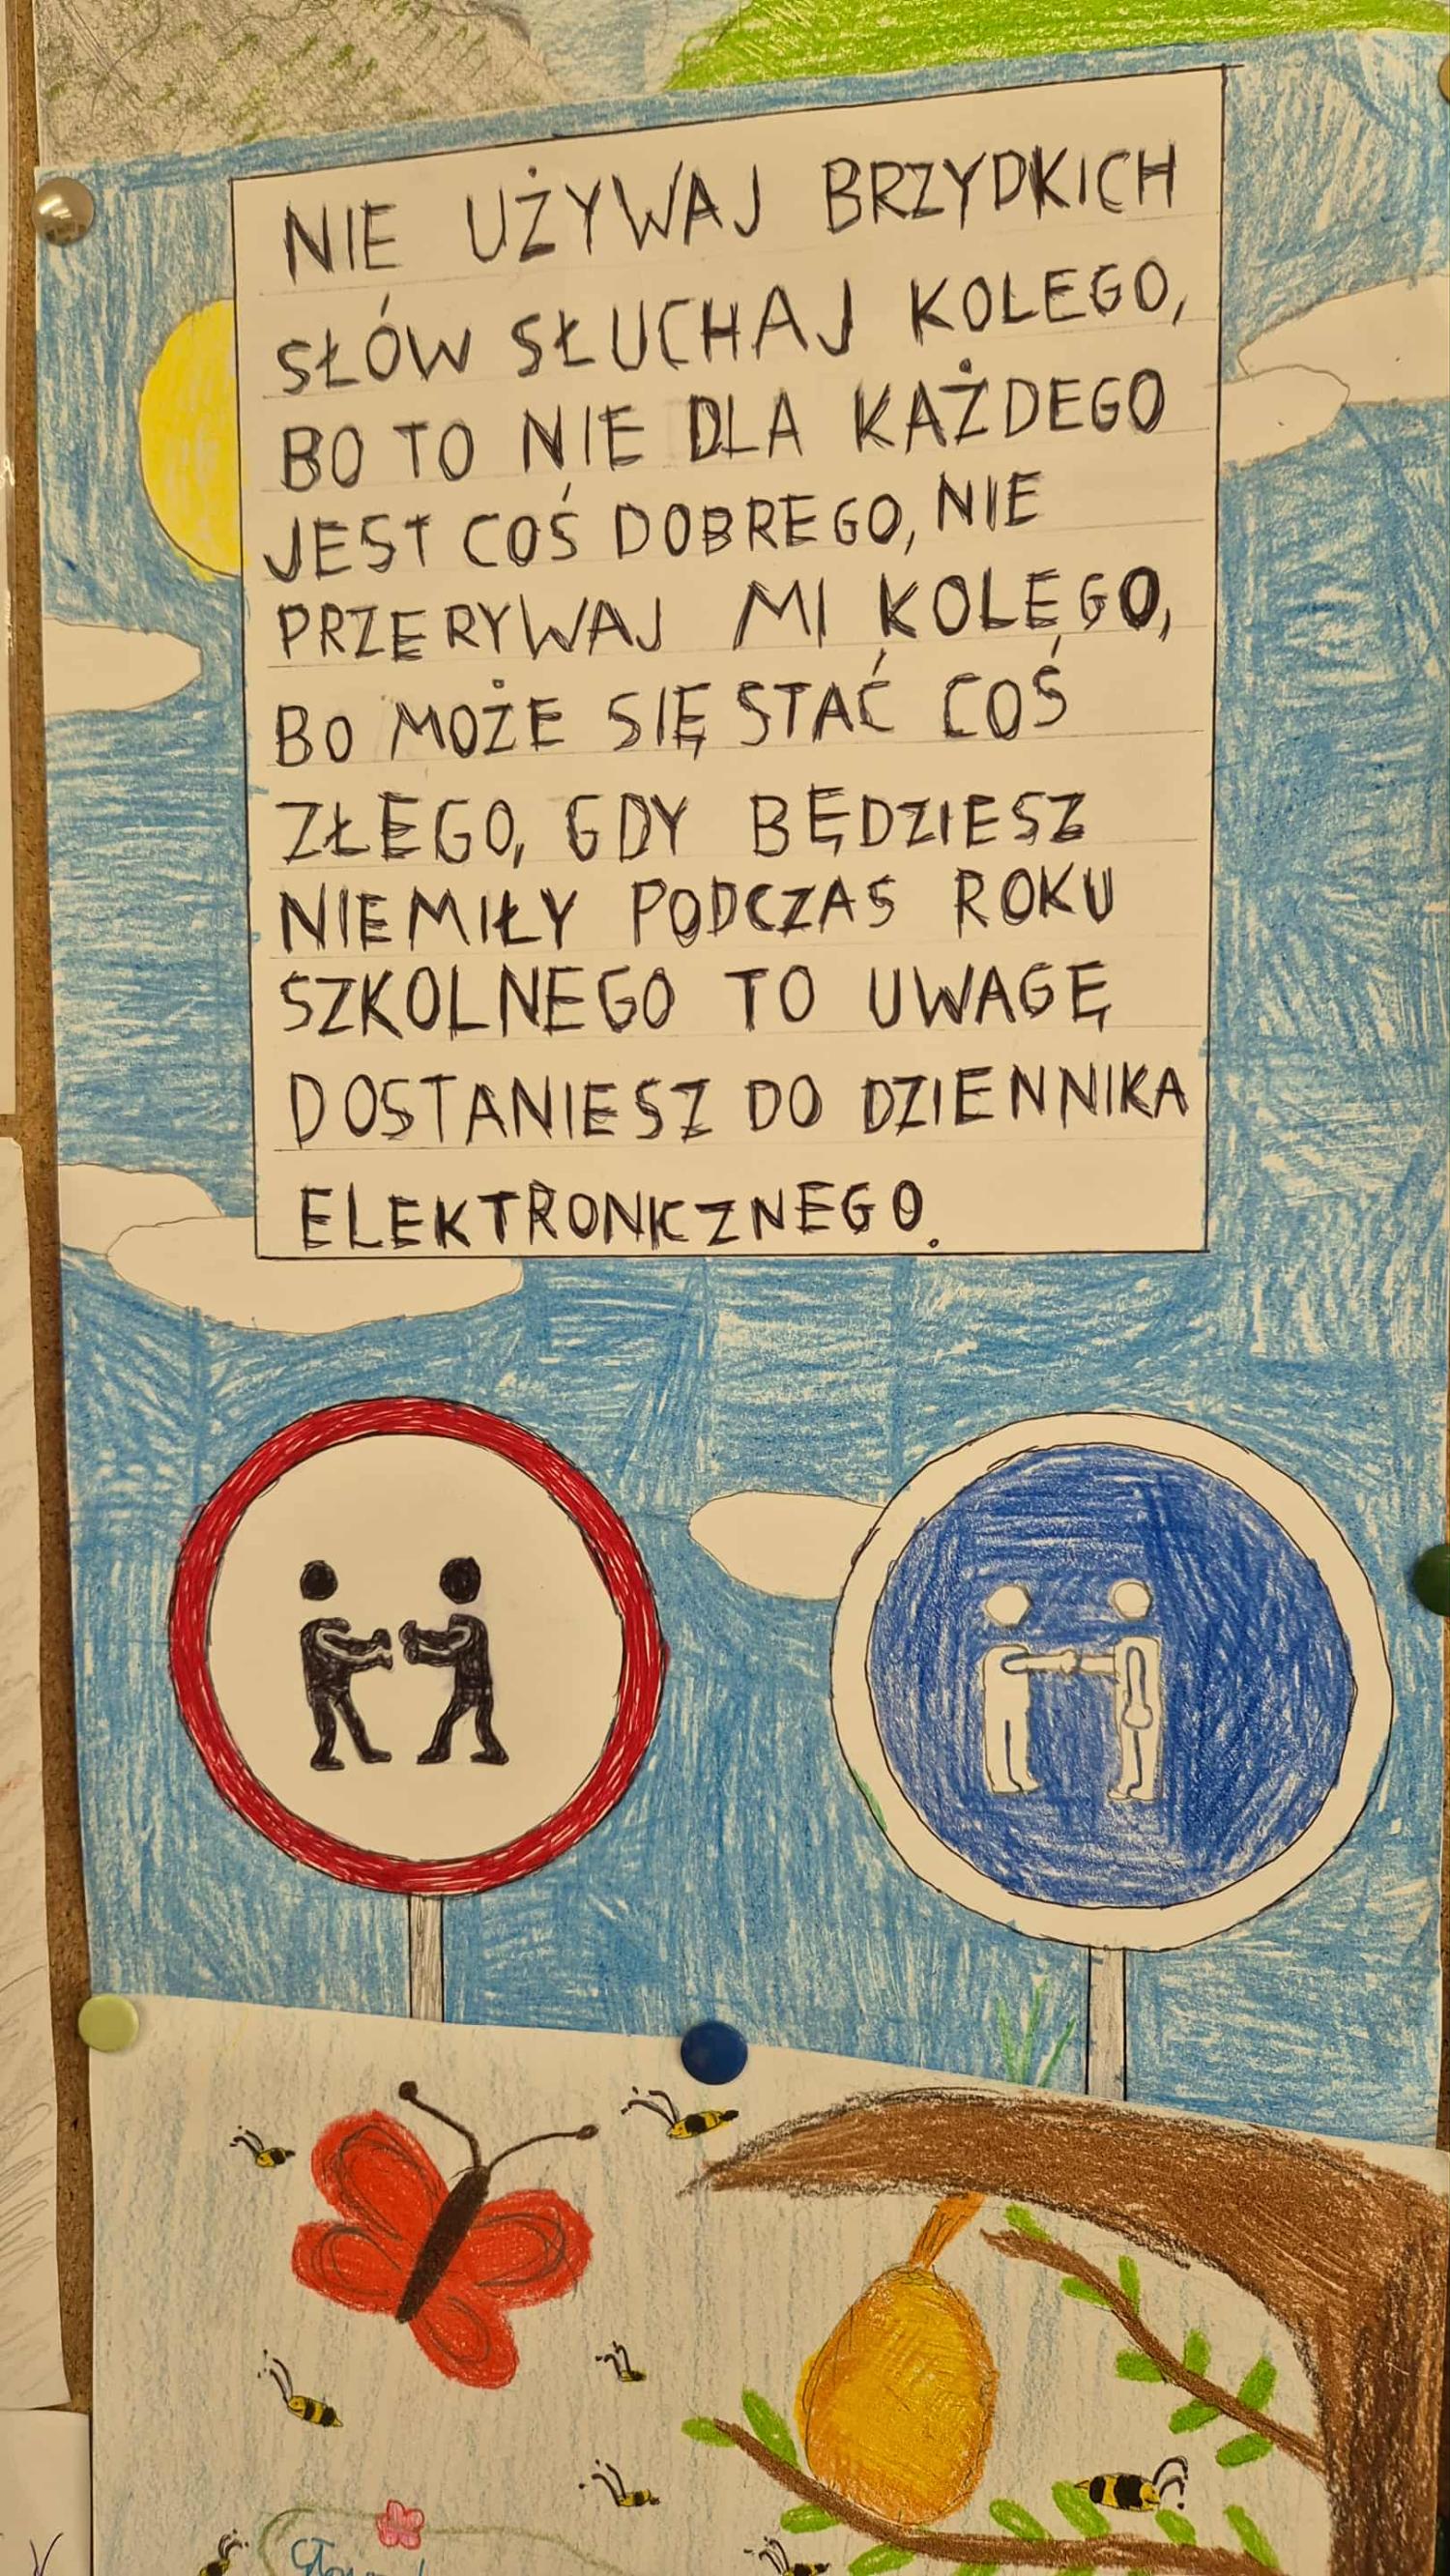 NIE UŻYWAJ BRZYDKICH
SŁÓW SŁUCHAJ KOLEGO,
BO TO NIE DLA KAŻDEGO
JEST COŚ DOBREGO, NIE
PRZERYWAJ MI KOLEGO,
BO MOŻE SIĘ STAĆ COŚ
ZŁEGO, GDY BĘDZIESZ
NIEMIŁY PODCZAS ROKU
SZKOLNEGO TO UWAGĘ
DOSTANIESZ DO DZIENNIKA
ELEKTRONICZNEGO.